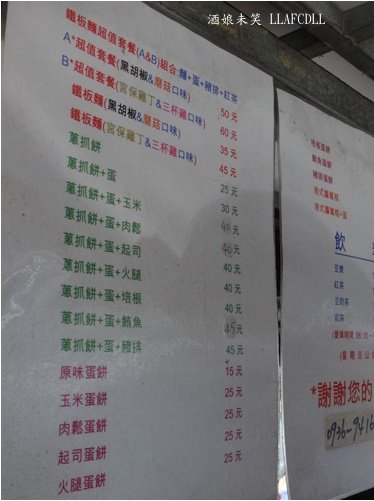 酒娘未笑 LLAFCDLL
鐵板麵超值套餐(A&B)組合:麵+蛋+豬排+紅茶
A*超值套餐(黑胡椒&磨菇口味) 50元
B*超值套餐(宮保雞丁&三杯雞口味) 60元
鐵板麵(黑胡椒&磨菇口味) 35元
鐵板麵(宮保雞丁&三杯雞口味) 45元
蔥抓餅 25元
蔥抓餅+蛋 30元
蔥抓餅+蛋+玉米 40元
蔥抓餅+蛋+肉鬆 40元
蔥抓餅+蛋+起司 40元
蔥抓餅+蛋+火腿 40元
蔥抓餅+蛋+培根 40元
蔥抓餅+蛋+鮪魚 45元
蔥抓餅+蛋+豬排 45元
原味蛋餅 15元
玉米蛋餅 25元
肉鬆蛋餅 25元
起司蛋餅 25元
火腿蛋餅 25元
培根蛋餅
鮪魚蛋餅
豬排蛋餅
港式蘿蔔糕
港式蘿蔔糕+蛋
飲
豆漿
紅茶
豆奶茶
奶茶
(營業時間
(星期日公
*謝謝您的
0936-9416